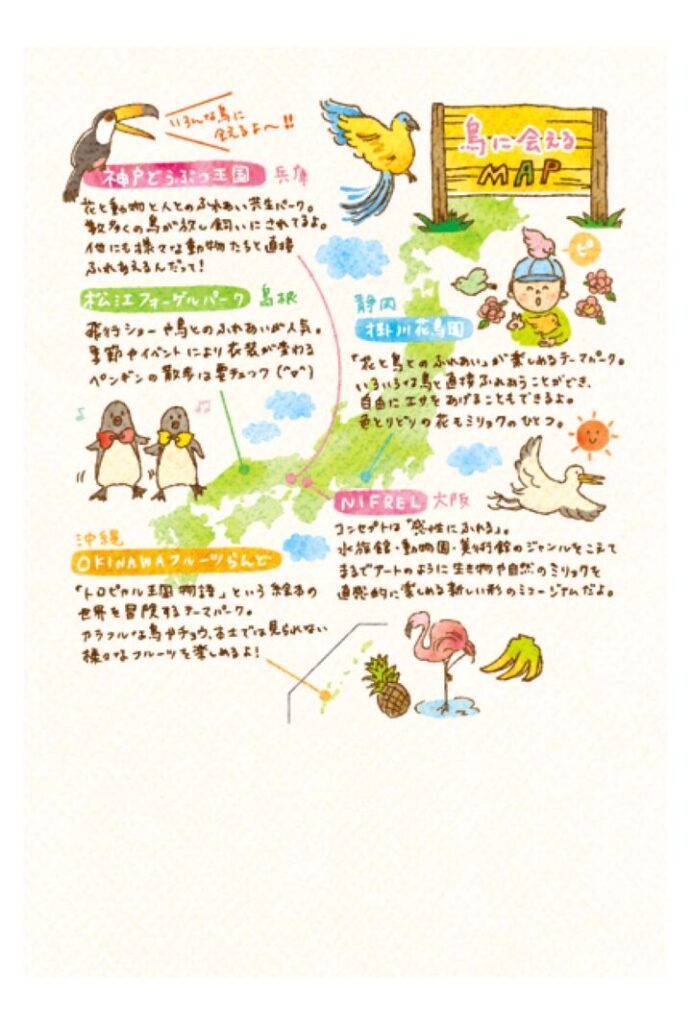 いろんな鳥に
会えるよ〜!!
鳥に会える
MAP
神戸どうぶつ王国 兵庫
花と動物と人とのふれあい共生パーク。
数多くの鳥が放し飼いにされてるよ。
他にも様々な動物たちと直接
ふれあえるんだって!
ピ
松江フォーゲルパーク 島根
飛行ショーや鳥とのふれあいが人気。
季節やイベントにより衣装が変わる
ペンギンの散歩は要チェック(^o^)
静岡
掛川花鳥園
「花と鳥とのふれあい」が楽しめるテーマパーク。
いろいろな鳥と直接ふれあうことができ、
自由にエサをあげることもできるよ。
色とりどりの花もミリョクのひとつ。
NIFREL 大阪
コンセプトは"感性にふれる"。
水族館・動物園・美術館のジャンルをこえて
まるでアートのように生き物や自然のミリョクを
直感的に楽しめる新しい形のミュージアムだよ。
沖縄
OKINAWAフルーツらんど
「トロピカル王国物語」という絵本の
世界を冒険するテーマパーク。
カラフルな鳥やチョウ、本土では見られない
様々なフルーツを楽しめるよ!